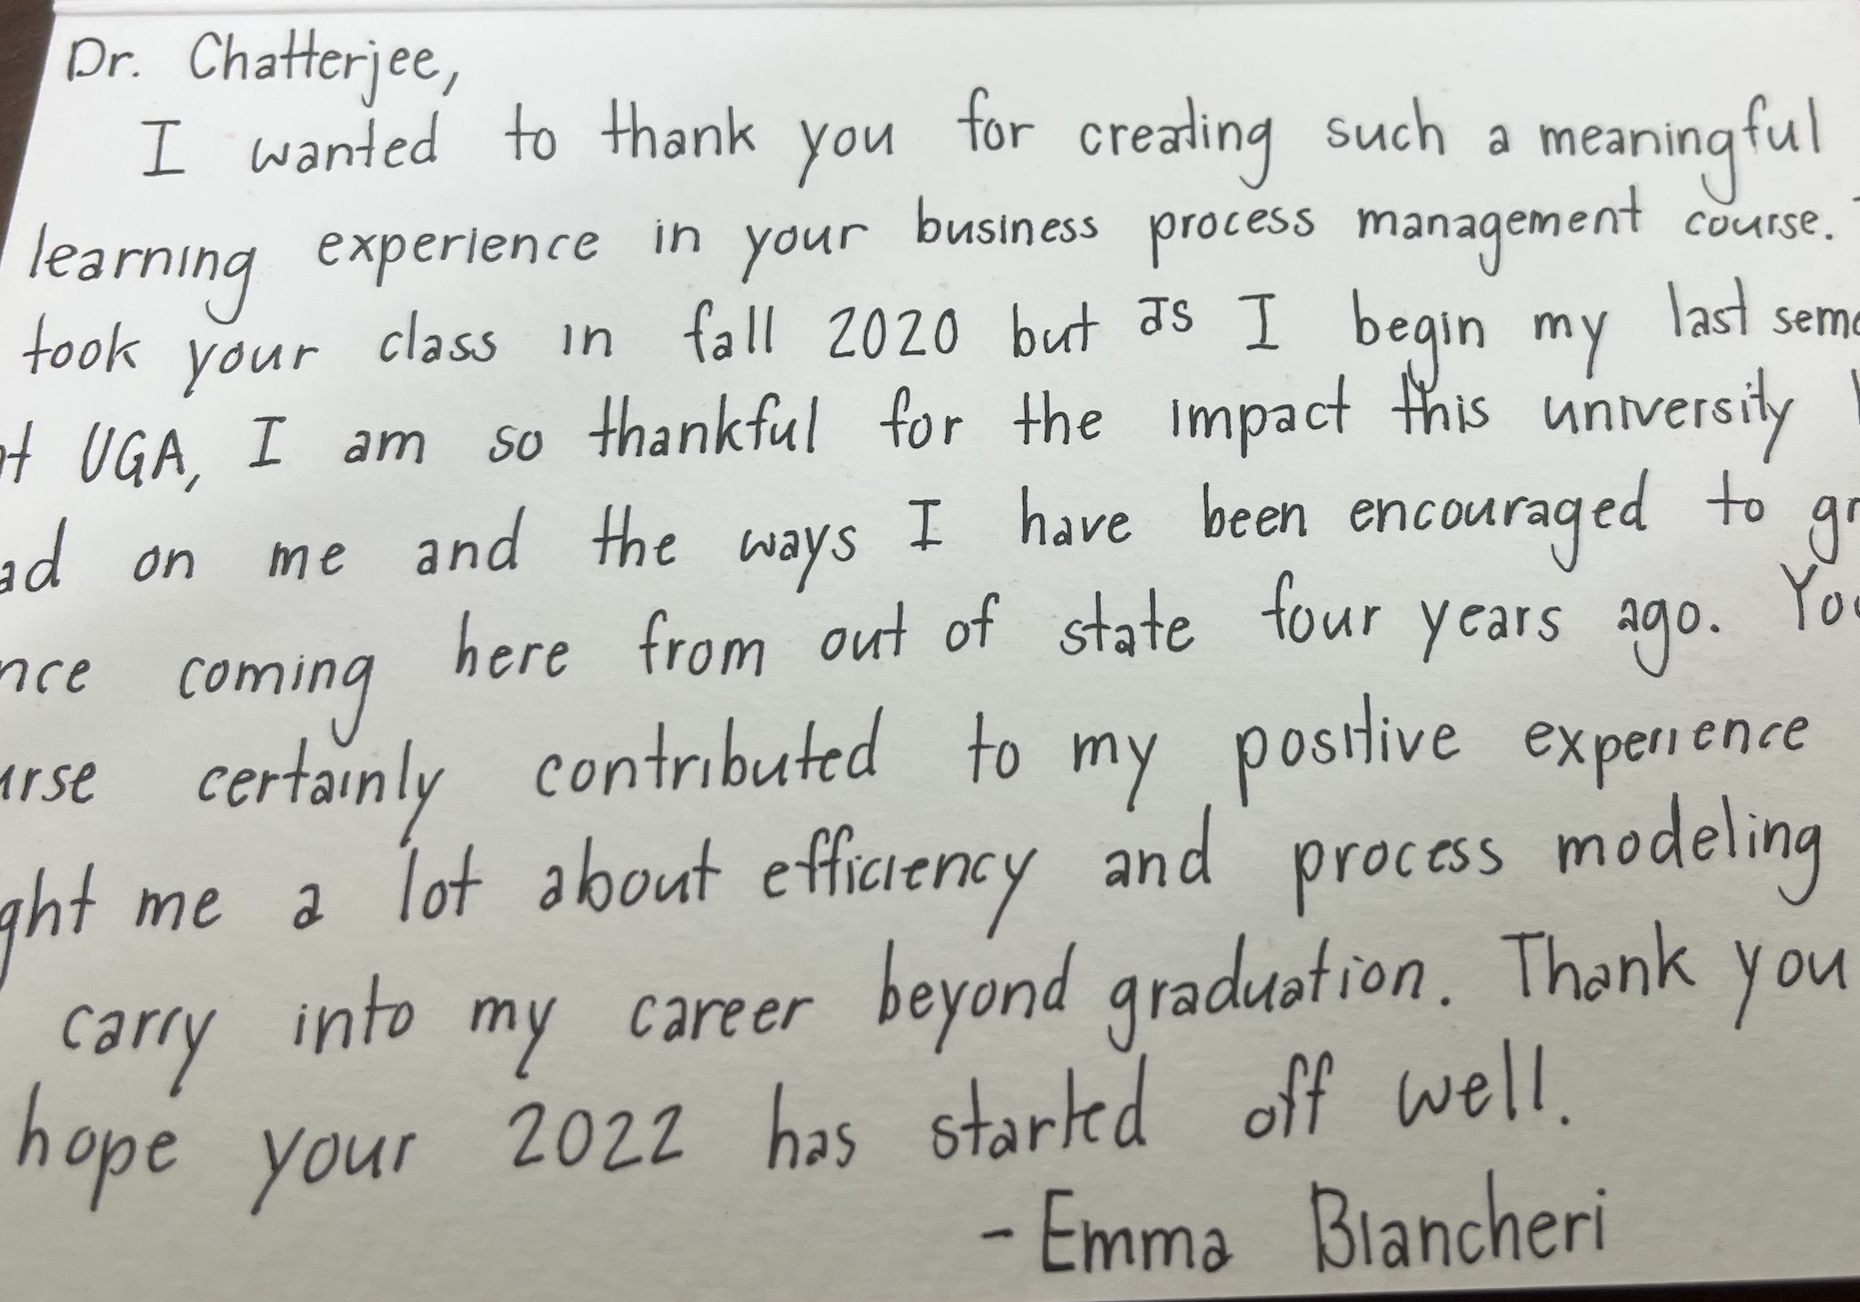 Dr. Chatterjee,
I wanted to thank you for creating such a meaningful
learning experience in your business process management course.
took your class in fall 2020 but as I begin my last
UGA, I am so thankful for the impact this university
on me and the ways I have been encouraged to
coming here from out of state four years ago.
certainly contributed to my positive experience
me a lot about efficiency and process modeling
carry into my career beyond graduation. Thank you
hope your 2022 has started off well.
- Emma Biancheri